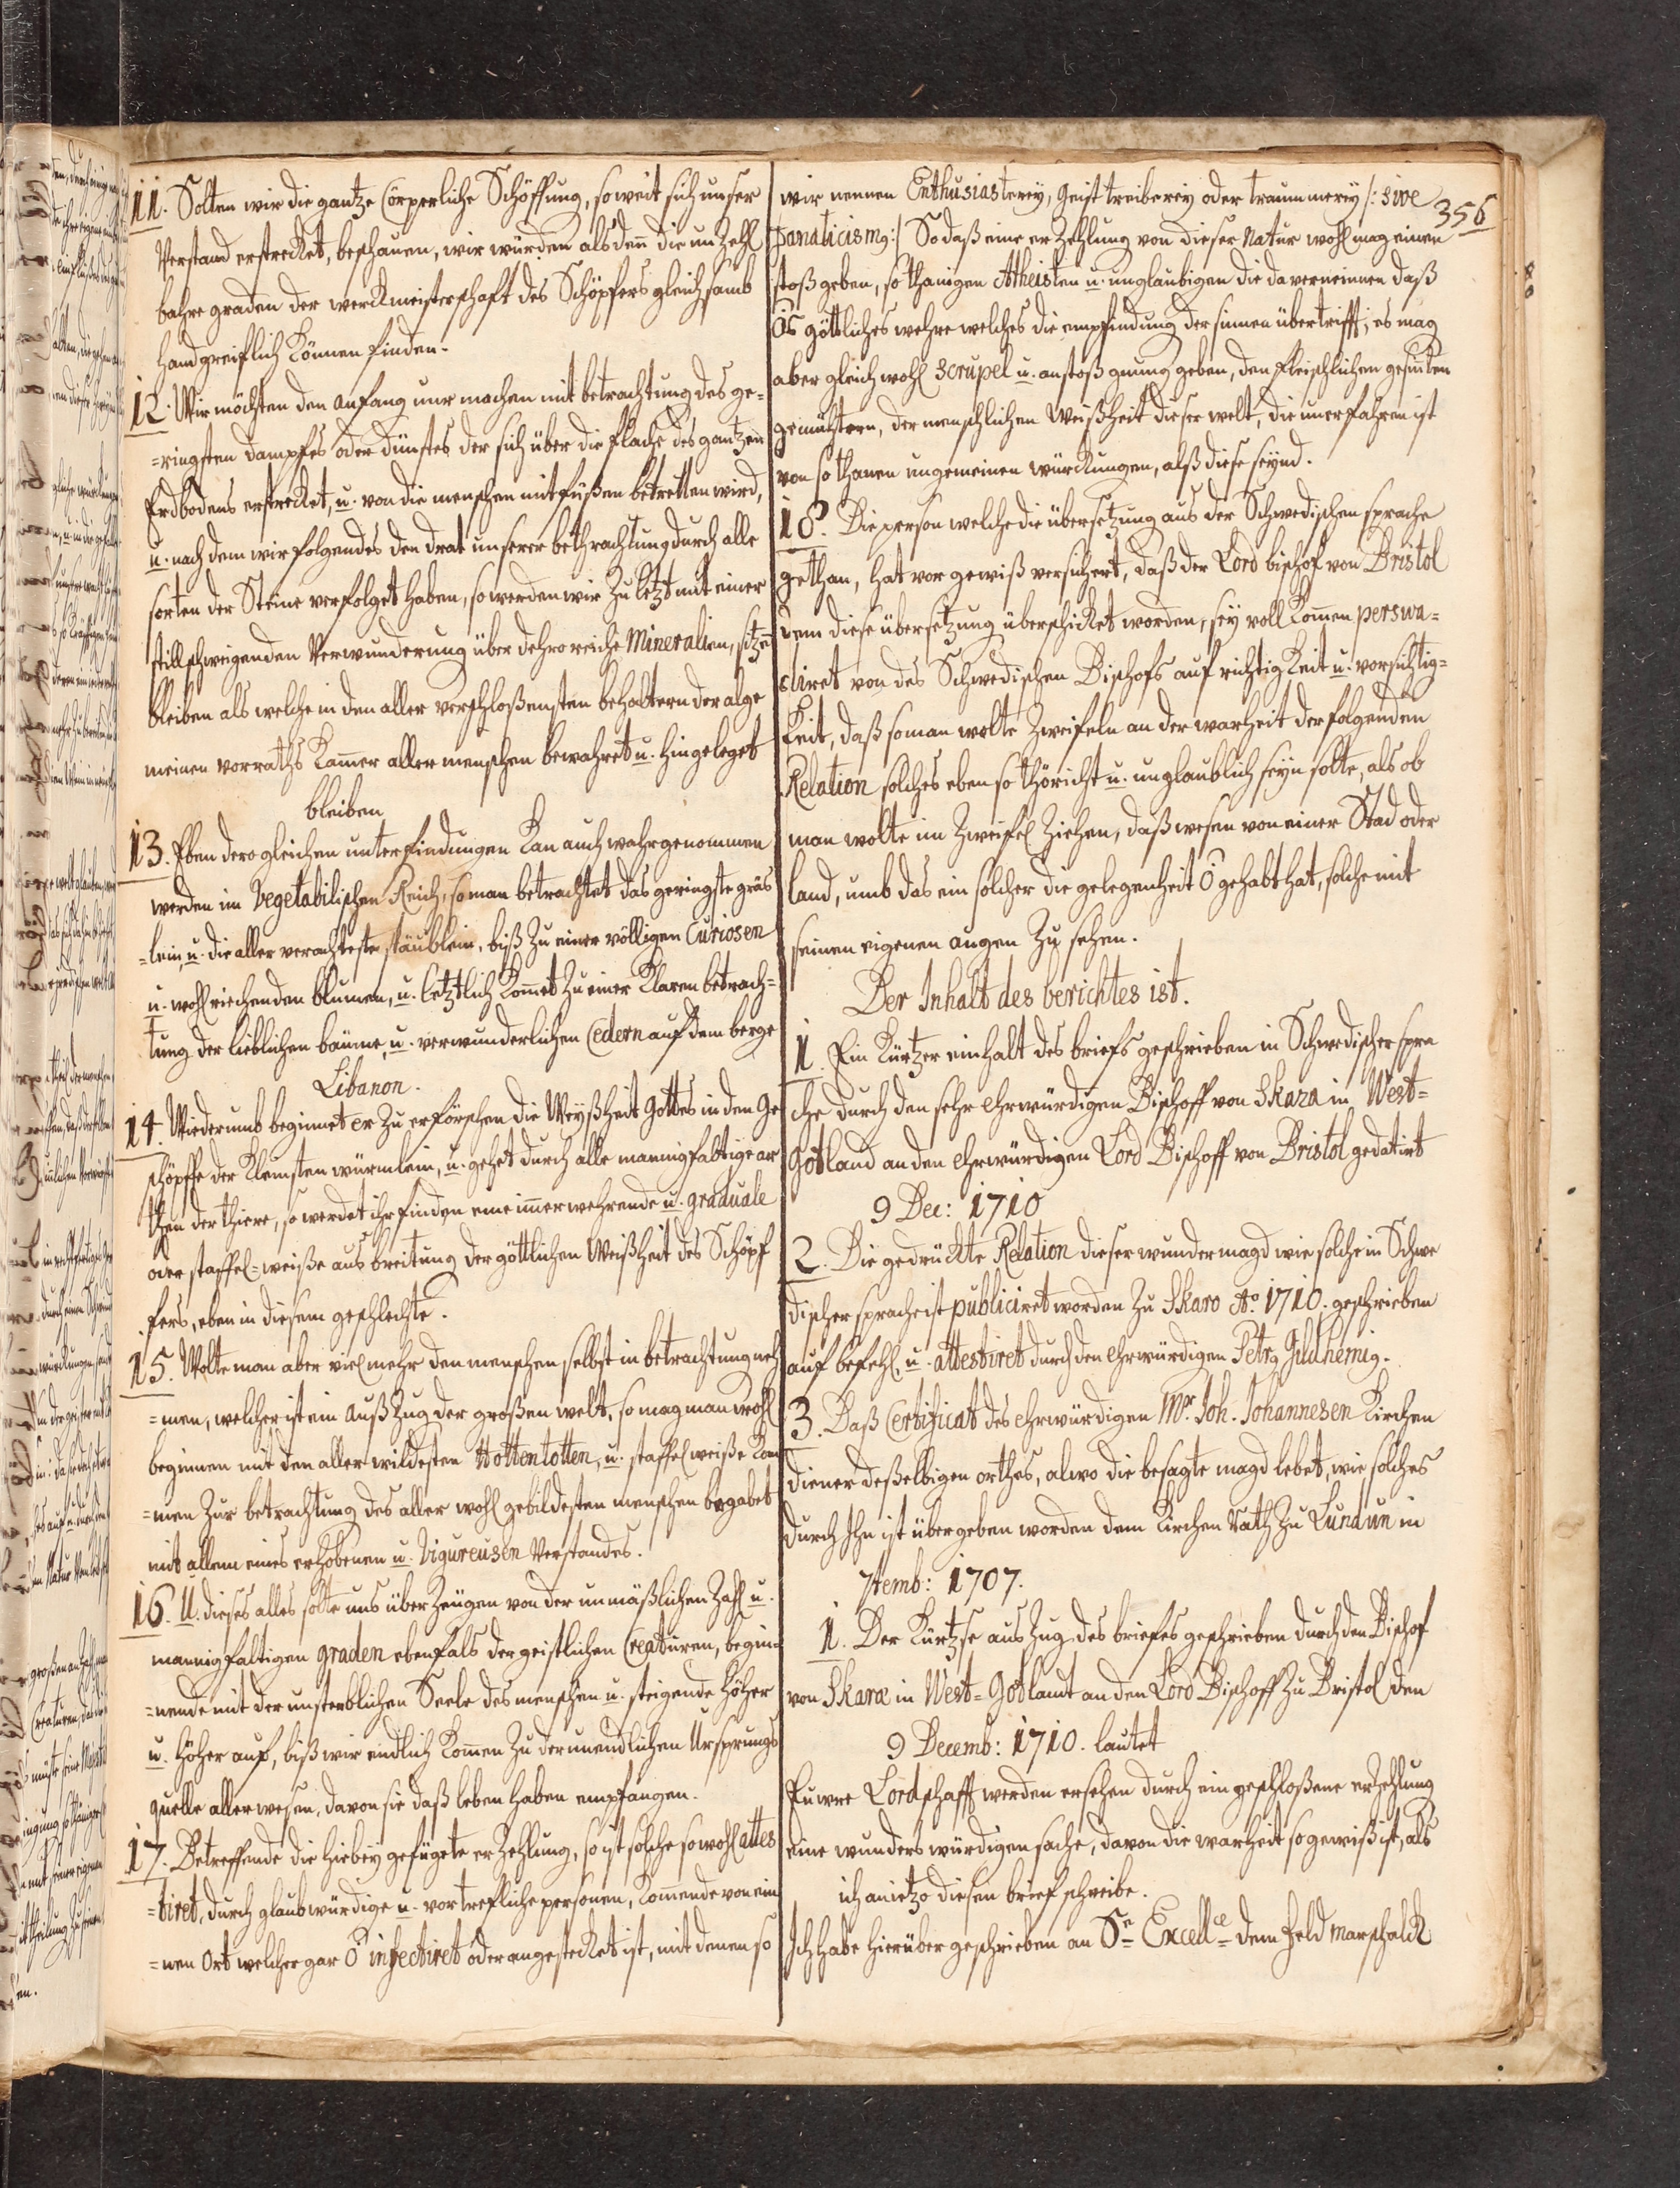 11. Solten wir die gantze Cörperliche Schöffung, so weit sich unser
Verstand erstrecket, beschauen, wir würden alsdenn die unzehl
bahre graden der werckmeisterschaft des Schöpfers gleichsamb
handgreiflich können finden.
12. Wir möchten den anfang nur machen mit betrachtung des ge-
=ringsten dampfes oder dünstes der sich über die flache des gantzen
Erdbodens erstrecket, u. von die menschen mit füßen betretten wird,
u. nach dem wir folgendes den drat unserer bethrachtung durch alle
sorten der Steine verfolget haben, so werden wir zu letzt mit einer
stillschweigenden Verwunderung über dehro reiche Mineralien, sitzen
bleiben als welche in den aller verschloßensten behaltern der alge
meinen vorraths Kamer aller menschen bewahret u. hingeleget
bleiben
13. Eben dero gleichen unterfindungen Kan auch wahrgenommen
werden im Vegetabilischen Reich, so man betrachtet das geringste gräs
=lein, u. die aller verachteste stäublein, biß zu einer völligen Curiosen
u. wohlriechenden blumen, u. letztlich Komet zu einer Klaren betrach=
tung der lieblichen bäume, u. verwunderlichen Cedern auf dem berge
Libanon.
14. Wiederumb beginnet er zu erforschen die Weyßheit Gottes in den Ge
schöpffe der Kleinsten würmlein, u. gehet durch alle mannigfaltige ar
then der thiere, so werdet ihr finden eine immerwehrende u. graduale
oder staffel=weiße ausbreitung der göttlichen Weißheit des Schöpf
fers, eben in diesem geschlechte.
15. Wolte man aber viel mehr den menschen selbst in betrachtung neh
=men, welcher ist ein außzug der großen welt, so mag man wohl
beginnen mit den aller wildesten Hottentotten, u. staffelweiße Kom
=men zur betrachtung des aller wohl gebildesten menschen begabet
mit allem eines erhobenen u. Vigureusen Verstandes.
16. U. dieses alles solte uns überzeugen von der unmäßlichen Zahl u.
mannigfaltigen graden ebenfals der geistlichen Creaturen, begin=
=nende mit der unsterblichen Seele des menschen u. steigende höher
u. höher auf, biß wir endlich Komen zu der unendlichen Ursprungs
quelle aller wesen, davon sie daß leben haben empfangen.
17. Betreffende die hiebey gefügete erzehlung, so ist solche so wohl attes
=tiret, durch glaubwürdige u. vortrefliche personen, Komende von ein
=nen Ort welcher gar ō infectiret oder angestecket ist, mit denen so
356
wir nennen Enthusiasterey, Geisttreiberey oder traummerey /: sive
Fanaticismq :/ So daß eine erzehlung von dieser Natur wohl mag einen
stoß geben, so thanigen Atheisten u. unglaubigen die da verneinen daß
ōs göttliches wehre welches die empfindung der sinnen übertriff; es mag
aber gleich wohl scrupel u. anstoß gnung geben, den fleischlichen gesinten
gemühtern, der menschlichen Weißheit dieser welt, die unerfahren ist
von so thanen ungemeinen würckungen, alß diese seynd.
18. Die person welche die übersetzung aus der Schwedischen sprache
gethan, hat vor gewiß versichert, daß der Lord bischof von Bristol
dem diese übersetzung überschicket worden, sey voll Komen perswa=
diret von des Schwedischen Bischofs aufrichtigkeit u. vorsichtig=
Keit, daß so man wolte zweifeln an der warheit der folgenden
Relation solches eben so thöricht u. unglaublich seyn solte, als ob
man wolte im zweifel ziehen, daß wesen von einer Stad oder
land, umb das ein solcher die gelegenheit ō gehabt hat, solche mit
seinen eigenen augen zu sehen.
Der Inhalt des berichtes ist.
1. Ein Kurtzer einhalt des briefs geschrieben in Schwedischer spra
che durch den sehr ehrwürdigen Bischoff von Skara in West=
Gotland an den ehrwürdigen Lord Bischoff von Bristol gedatirt
9 Dec: 1710
2. Die gedruckte Relation dieser wundermagd wie solche in Schwe
discher sprache ist publiciret worden zu Skaro Ao. 1710. geschrieben
auf befehl, u. attestiret durch den ehrwürdigen Petrq Gudhemiq.
3. Daß Certificat des ehrwürdigen Mr. Joh. Johannesen Kirchen
diener deßelbigen orthes, alwo die besagte magd lebet, wie solches
durch ihn ist übergeben worden dem Kirchen Rath zu Lundun in
7temb: 1707.
1. Der Kurtze auszug des briefes geschrieben durch den Bischof
von Skara in West=Gotlant an den Lord Bischoff zu Bristol den
9 Decemb: 1710. lautet
Euwre Lordschafft werden ersehen durch eingeschloßene erzehlung
eine wunders würdigen sache, davon die warheit so gewiß ist, als
ich anietzo diesen brief schreibe.
Ich habe hierüber geschrieben an Sr Excellce dem Feld Marschalck